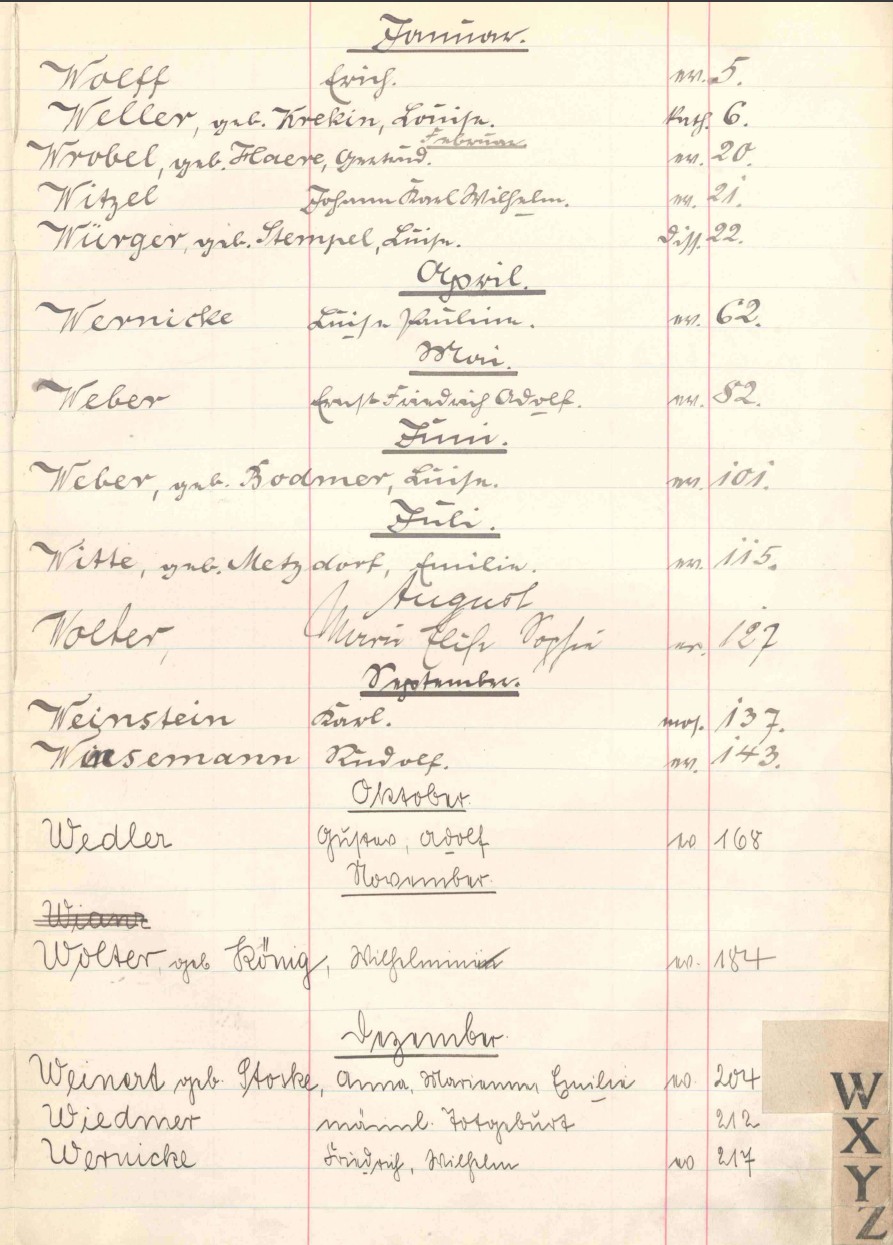 Januar.
Wolff Erich. ev. 5.
Weller, geb. Krekin, Louise. kath. 6.
Februar
Wrobel, geb. Haere, Gertrud. ev. 20.
Witzel Johann Karl Wilhelm. ev. 21.
Würger, geb. Stempel, Luise. Diss. 22.
April.
Wernicke Luise Pauline. ev. 62.
Mai.
Weber Ernst Friedrich Adolf. ev. 82.
Juni.
Weber, geb. Bodmer, Luise. ev. 101.
Juli.
Witte, geb. Metzdorf, Emilie. ev. 115.
August
Wolter, Marie Elise Sophie ev. 127
September.
Weinstein Karl. mos. 137.
Wiesemann Rudolf. ev. 143.
Oktober.
Wedler Gustav, Adolf ev 168
November.
Wianr
Wolter, geb König, Wilhelmine ev. 184
Dezember
Weinert geb. Stoske, Anna, Marianne, Emilie ev. 204
Wiedmer männl. Totgeburt 212
Wernicke Friedrich, Wilhelm ev 217
W
X
Y
Z